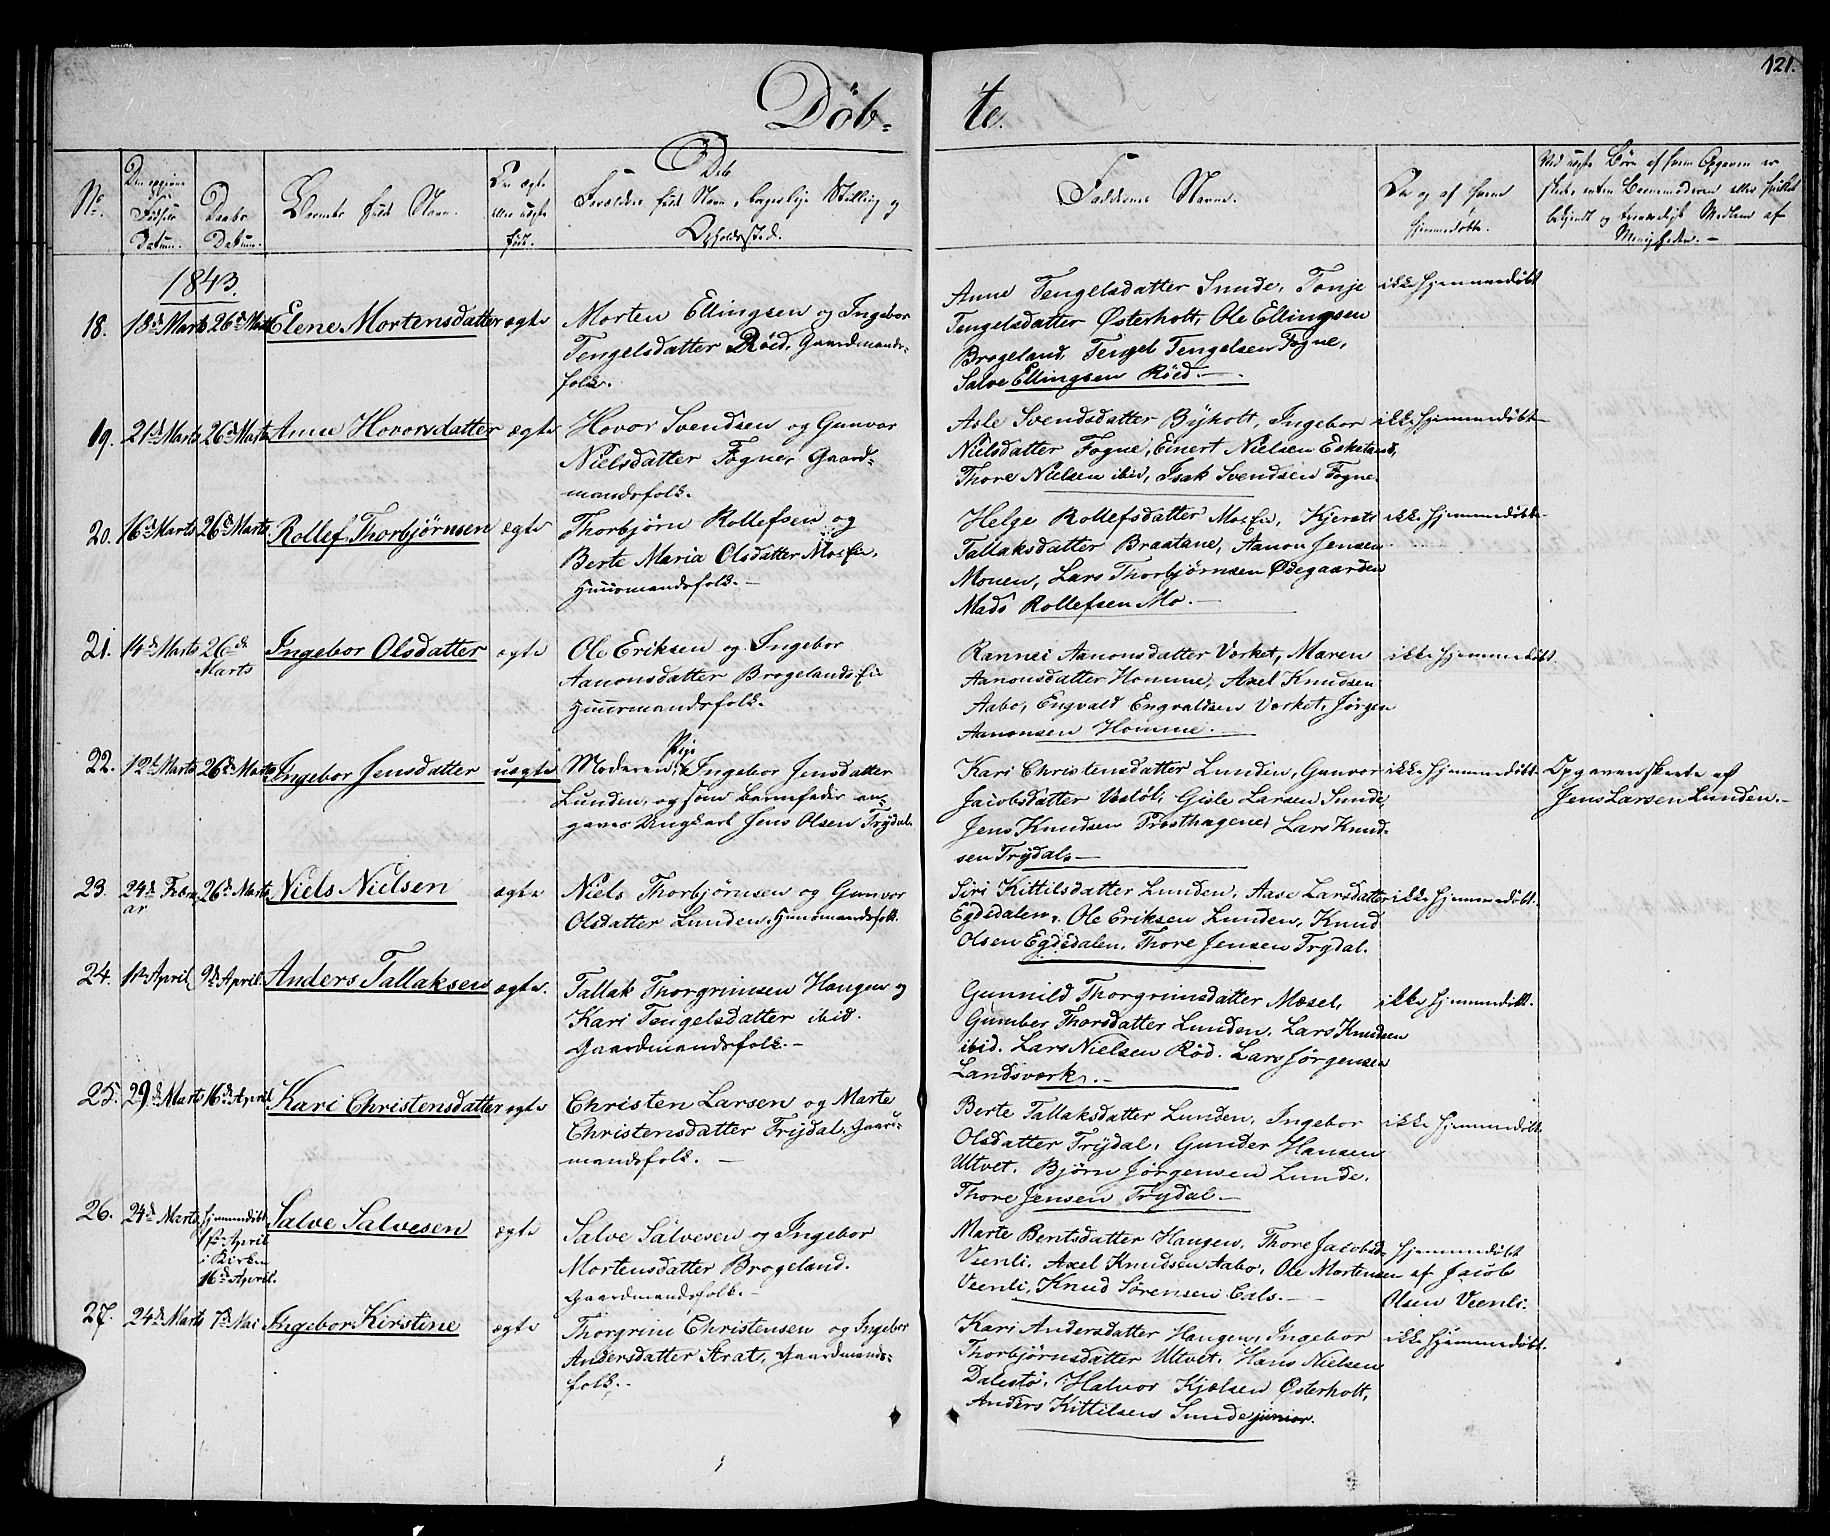 121.
Döb-
te.
No.
Den opgivne Fødsels Datum.
Daabs Datum.
Barnets fulde Navn.
Om ægte eller uægte født.
Deb
Forældres fulde Navn, borgerlige Stilling og Opholdssted.
Faddernes Navne.
Om og af hvem hjemmedøbt.
Ved uægte Børn af hvem Opgaven er skeet, enten Jordemoderen eller paalideligt bekjendt og troværdigt Medlem af Menigheden. -
1843.
18. 18de Marts 26de Marts Elene Mortensdatter ægte
Morten Ellingsen og Ingebor
Tengelsdatter Röed, Gaardmands-
folk.
Anne Tengelsdatter Sunde, Tonje
Tengelsdatter Østerholt, Ole Ellingsen
Brogeland, Tengel Tengelsen Fogne,
Salve Ellingsen Röed. -
ikke hjemmedøbt
19. 21de Marts 26de Marts Anne Hovorsdatter ægte
Hovor Svendsen og Gunvor
Nielsdatter Fogne, Gaard-
mandsfolk.
Asle Svendsdatter Byholt, Ingebor
Nielsdatter Fogne, Einert Nielsen Eskeland,
Thore Nielsen ibid, Isak Svendsen Fogne.
ikke hjemmedøbt
20. 16de Marts 26de Marts Rollef Thorbjørnsen ægte
Thorbjørn Rollefsen og
Berte Maria Olsdatter Moseie,
Huusmandsfolk. -
Helge Rollefsdatter Moeie, Kjersti
Tallaksdatter Braatane, Aanon Jensen
Monen, Lars Thorbjørnsen Ødegaarden
Mads Rollefsen Mo. -
ikke hjemmedøbt
21. 14de Marts 26de Marts Ingebor Olsdatter ægte
Ole Eriksen og Ingebor
Aanonsdatter Brogelandseie
Huusmandsfolk.
Rannei Aanonsdatter Værket, Maren
Aanonsdatter Homme, Axel Knudsen
Aabo, Engvald Engvaldsen Værket, Jörgen
Aanonsen Homme. -
ikke hjemmedøbt.
22. 12te Marts 26de Marts Ingebor Jensdatter uægte
Moderen: Pige Ingebor Jensdatter
Lunden, og som Barnefader an-
gaves Ungkarl Jens Olsen Trydal.
Kari Christensdatter Lunden, Gunvor
Jacobsdatter Vestöl, Gisle Larsen Sunde,
Jens Knudsen Frosthagene, Lars Knud-
sen Trydal. -
ikke hjemmedøbt
Opgaven skeete af
Jens Larsen Lunden. -
23. 24de Febru-
ar 26de Marts Niels Nielsen ægte
Niels Thorbjørnsen og Gunvor
Olsdatter Lunden, Huusmandsfolk.
Siri Kittilsdatter Lunden, Aase Larsdatter
Egdedalen, Ole Eriksen Lunden, Knud
Olsen Egdedalen, Thore Jensen Trydal.
ikke hjemmedøbt.
24. 1ste April 9de April. Anders Tallaksen ægte.
Tallak Thorgrimsen Haugen og
Kari Tengelsdatter ibid.
Gaardmandsfolk. -
Gunnild Thorgrimsdatter Mæsel,
Gunber Thorsdatter Lunden, Lars Knudsen
ibid. Lars Nielsen Röd. Lars Jörgensen
Landsværk. -
ikke hjemmedøbt.
25. 29de Marts 16de April Kari Christensdatter ægte
Christen Larsen og Marte
Christensdatter Trydal, Gaard-
mandsfolk. -
Berte Tallaksdatter Lunden, Ingebor
Olsdatter Trydal, Gunder Hansen
Utvet, Bjørn Jørgensen Lunde,
Thore Jensen Trydal. -
ikke hjemmedøbt
26. 24de Marts hjemmedøbt
1ste April
i Kirken
16de April. Salve Salvesen ægte
Salve Salvesen og Ingebor
Mortensdatter Brogeland.
Gaardmandsfolk. -
Marte Bentsdatter Haugen, Thore Jacobsd.
Veenli, Axel Knudsen Aabo, Ole Mortensen
Veenli, Knud Sörensen Eals. -
hjemmedøbt
af Jacob
Olsen Veenli.
27. 24de Marts 7de Mai Ingebor Kirstine ægte
Thorgrim Christensen og Ingebor
Andersdatter Strat, Gaardmands-
folk. -
Kari Andersdatter Haugen, Ingebor
Thorbjørnsdatter Utvet, Hans Nielsen
Dalestö, Halvor Kjælsen Østerholt,
Anders Kittilsen Sunde junior.
ikke hjemmedøbt.